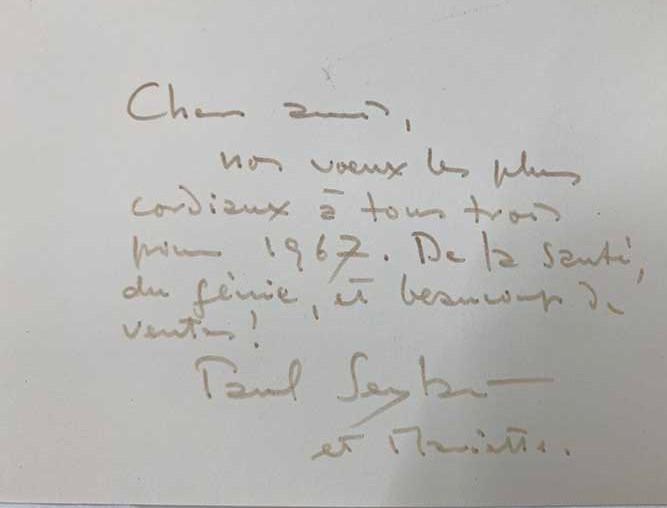 Chers amis,
nos voeux les plus
cordiaux à tous trois
pour 1967. De la santé,
du génie, et beaucoup de
ventes!
Paul
et Mariette.